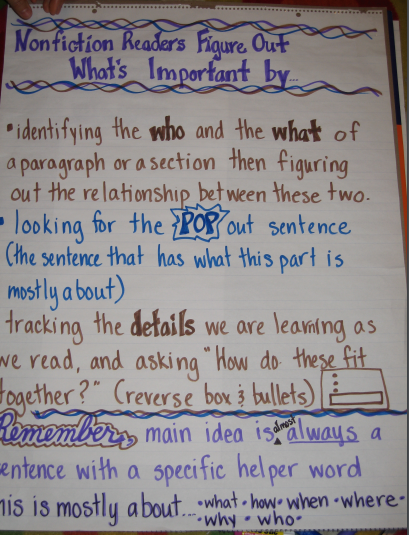 Nonfiction Readers Figure Out
What's Important by...
•identifying the who and the what of
a paragraph or a section then figuring
out the relationship between these two.
• looking for the POP out sentence
(the sentence that has what this part is
mostly about)
tracking the details we are learning as
we read, and asking "How do these fit
together?" (reverse box & bullets)
Remember, main idea is almost always a
sentence with a specific helper word
this is mostly about... •what •how• when •where•
•why • who•